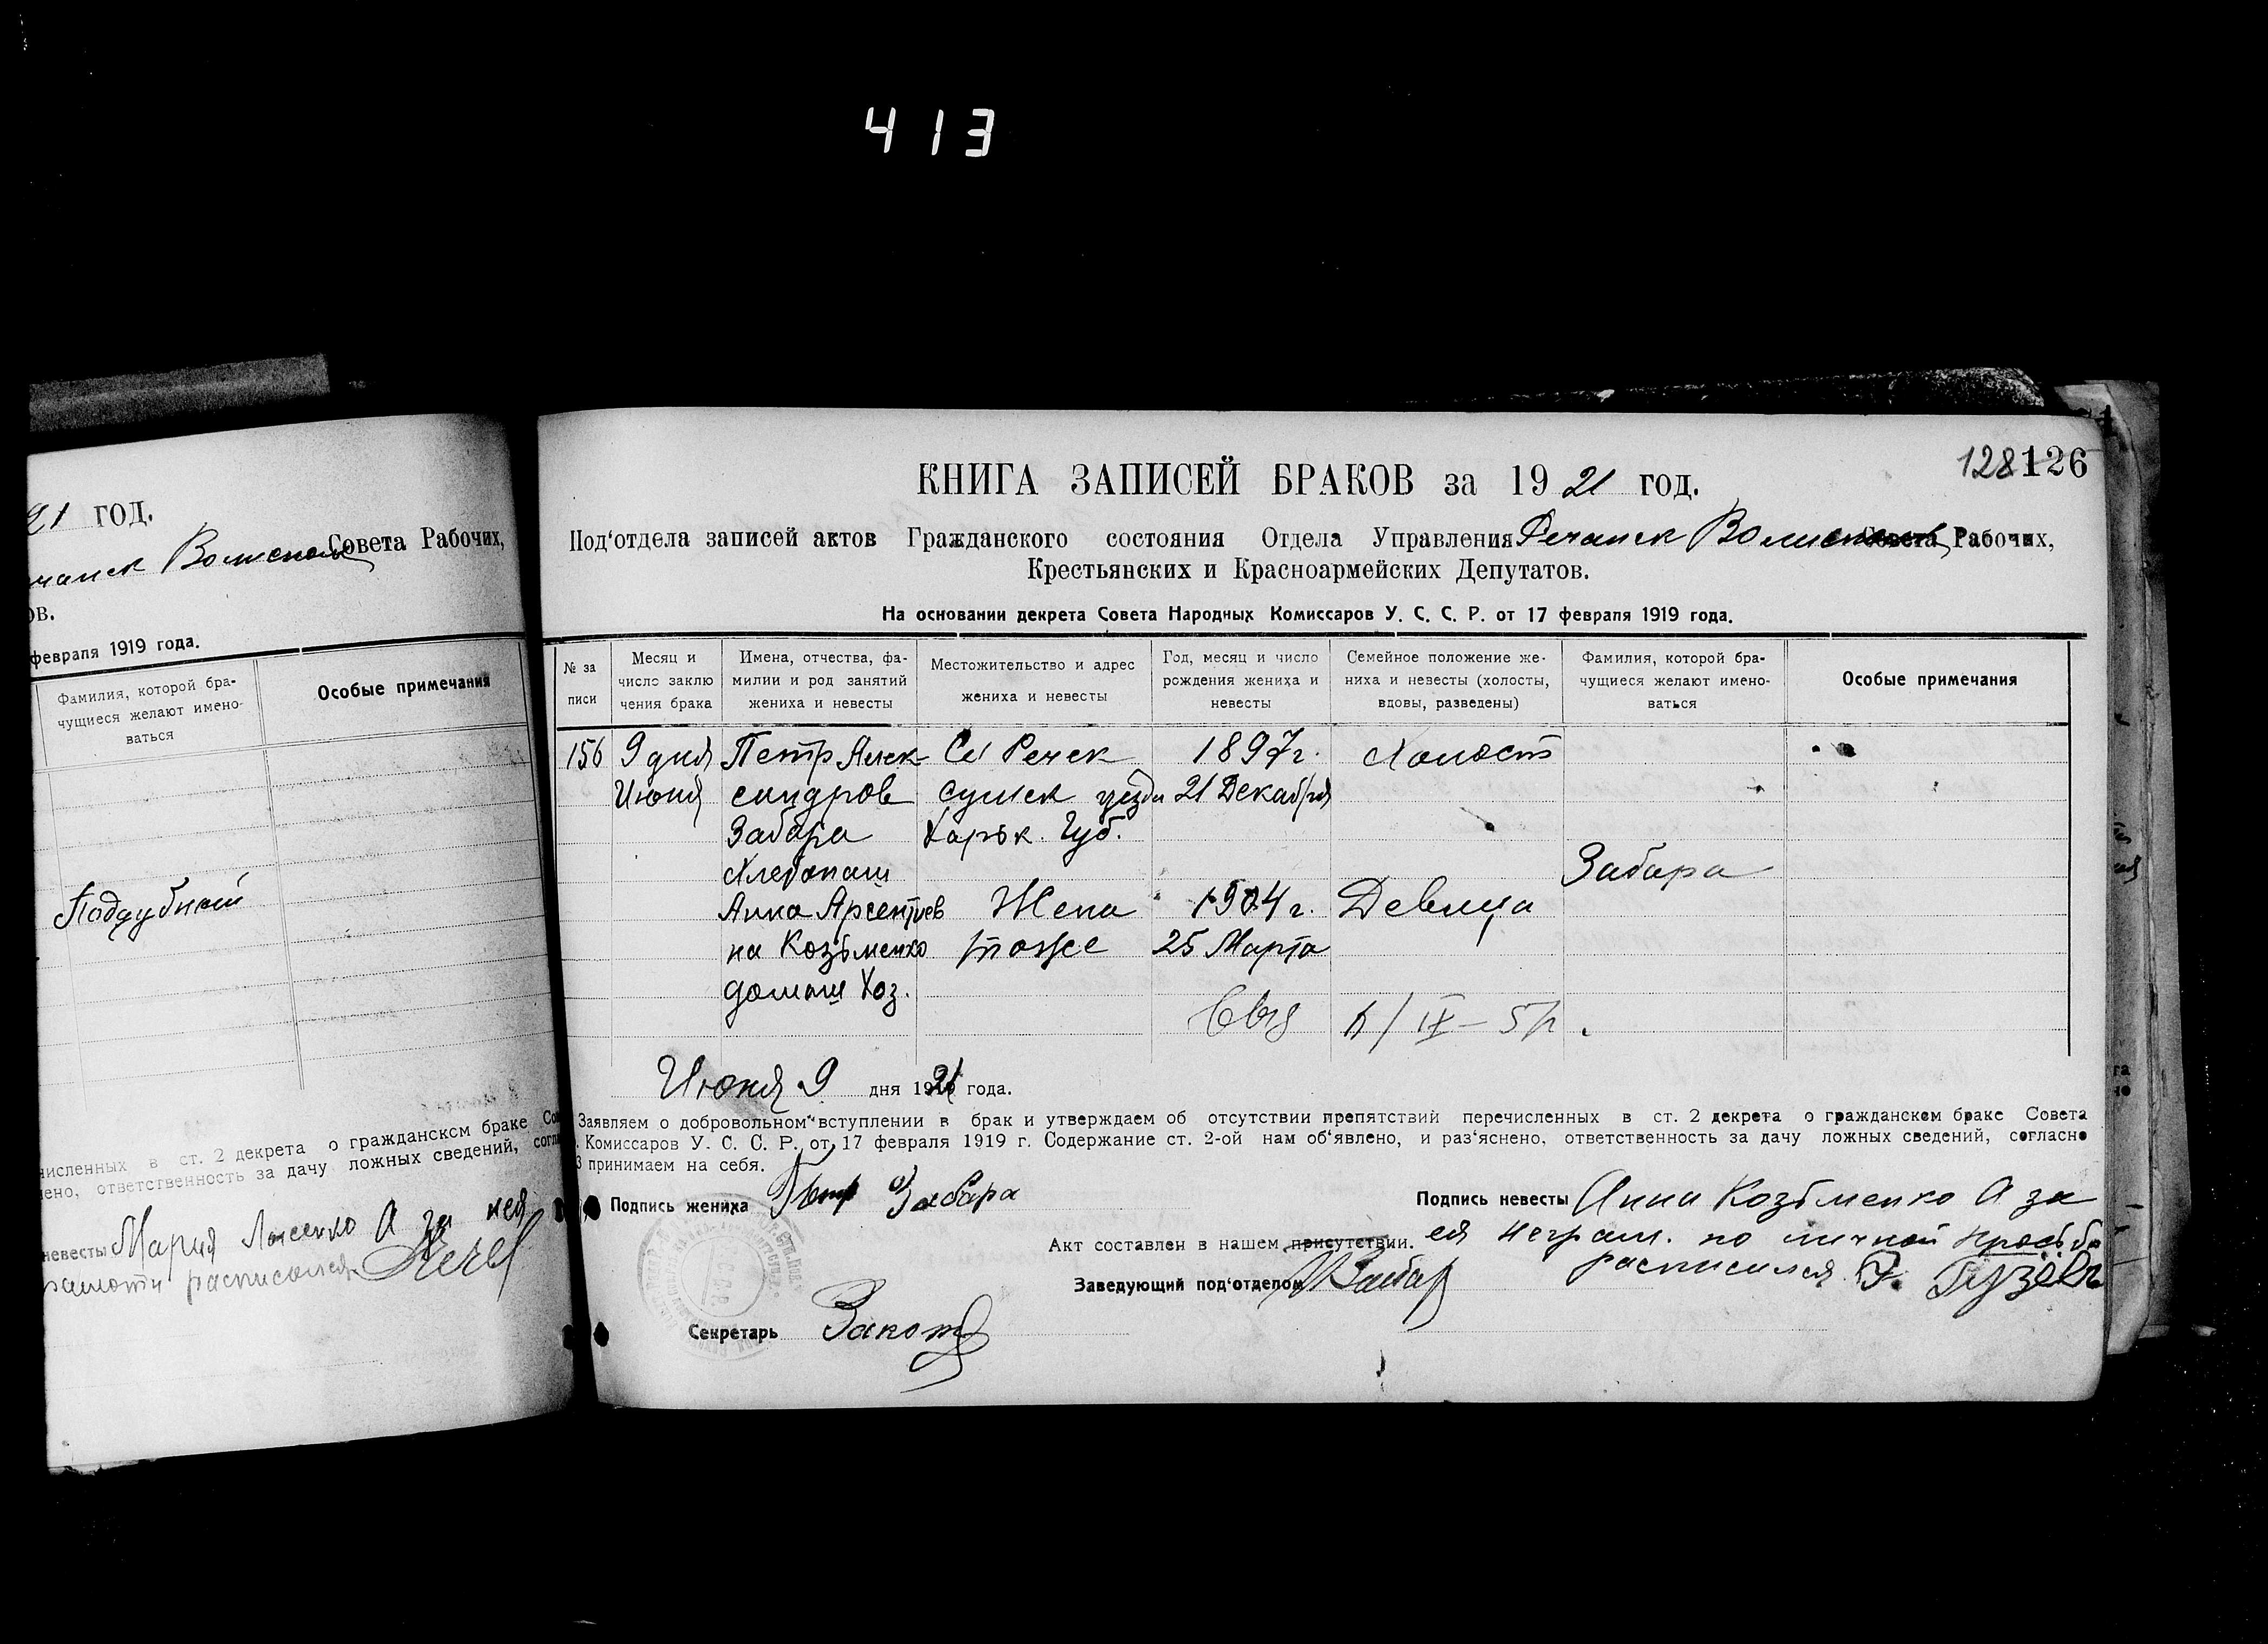 413
21 год.
Совета Рабочих,
ов.
февраля 1919 года.
Фамилия, которой бра-
чущиеся желают имено-
ваться
Особые примечания
Поддубный
численных в ст. 2 декрета о гражданскcм браке Со
ено, ответственность за дачу ложных сведений, согла
невесты Мария Лысенко А за нея
расписался
128 126
КНИГА ЗАПИСЕЙ БРАКОВ за 1921 год.
Под‘отдела записей актов Гражданского состояния Отдела Управления Речанск Совета Рабочих,
Крестьянских и Красноармейских Депутатов.
На основании декрета Совета Народных Комиссаров У. С. С. Р. от 17 февраля 1919 года.
№ за
писи
Месяц и
число заклю
чения брака
Имена, отчества, фа-
милии и род занятий
жениха и невесты
Местожительство и адрес
жениха и невесты
Год, месяц и число
рождения жениха и
невесты
Семейное положение же-
ниха и невесты (холосты,
вдовы, разведены)
Фамилия, которой бра-
чущиеся желают имено-
ваться
Особые примечания
156 9 дня Петр Алек- Сл Речек 1897 г. Холост
Июня сандров Сумск уезда 21 Декабря
Забара Харьк. Губ.
Хлебопаш
Забара
Анна Арсентиев Жена 1904 г. Девица
на Козьменко тоже 25 Марта
домаш Хоз.
IX – 57
Июня 9 дня 1921 года.
Заявляем о добровольном вступлении в брак и утверждаем об отсутствии препятствий перечисленных в ст. 2 декрета о гражданскем браке Совета
. Комиссаров У. С. С. Р. от 17 февраля 1919 г. Содержание ст. 2-ой нам об‘явлено, и раз‘яснено, ответственность за дачу ложных сведений, согласно
3 принимаем на себя.
Подпись жениха Петр Забара
Подпись невесты Анна Козьменко А за
ея неграм. по личной просьбе
расписался Гузевъ
Акт составлен в нашем присутствии.
Заведующий под‘отделом
Секретарь